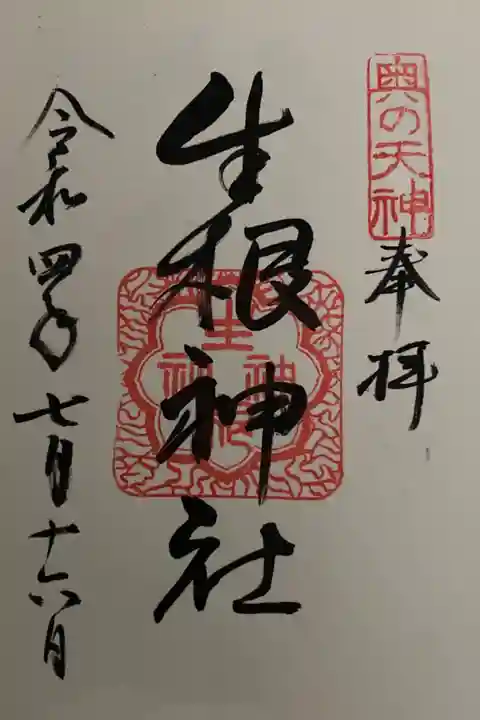 奥の天神
奉拝
生根神社
令和四年七月十六日